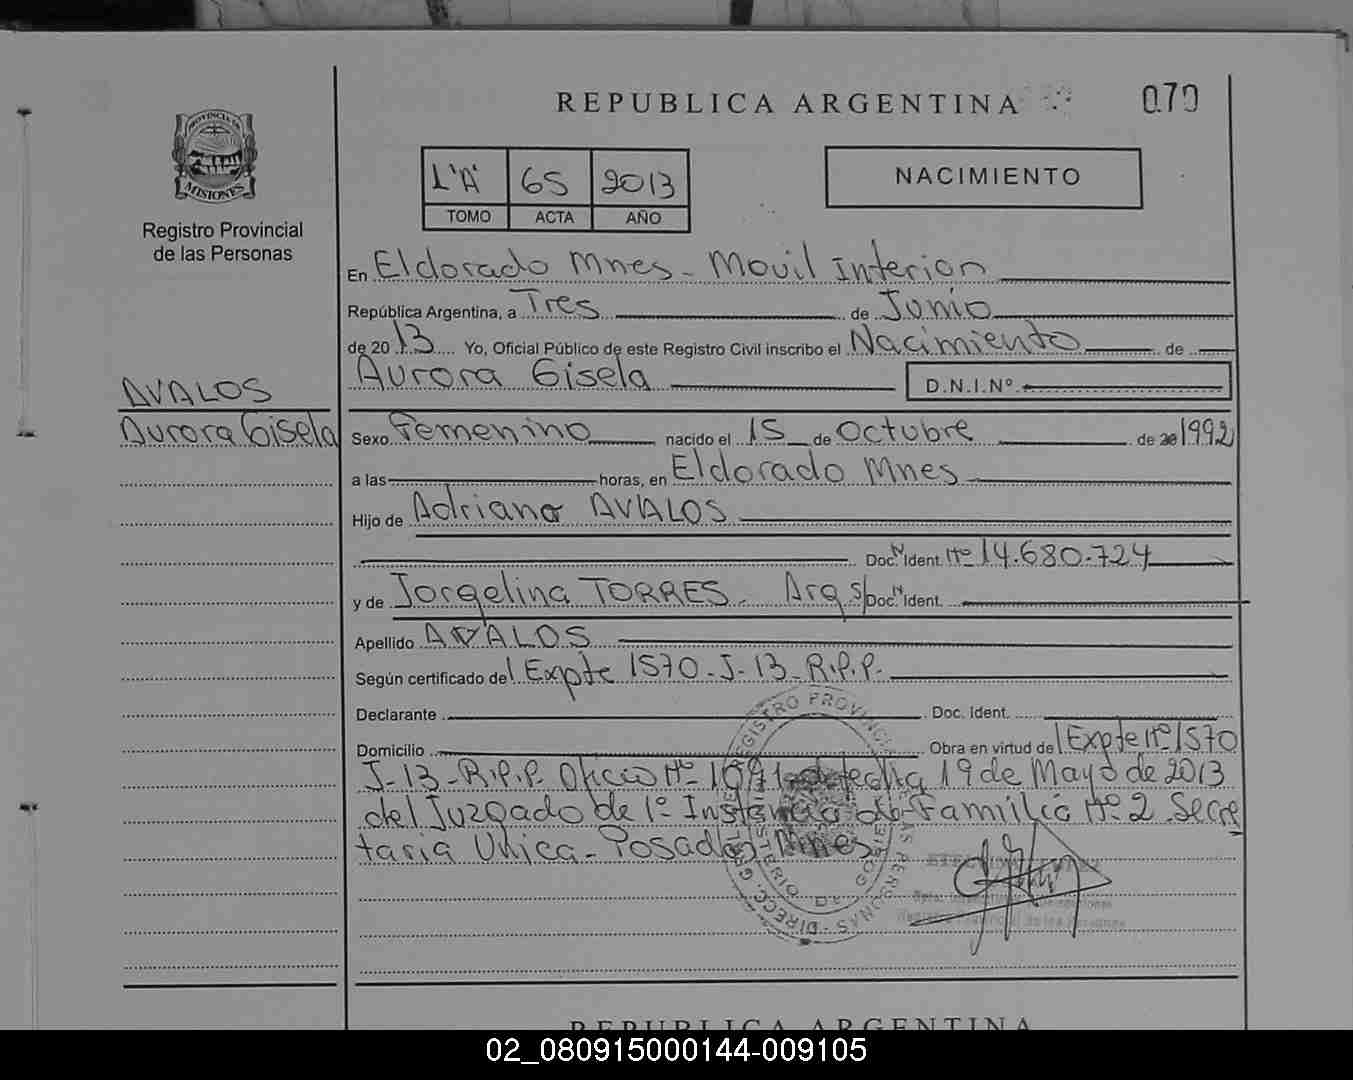 REPUBLICA ARGENTINA
070
PROVINCIA DE
MISIONES
Registro Provincial
de las Personas
1°"A" 65 2013
TOMO ACTA AÑO
NACIMIENTO
En Eldorado Mnes - Movil Interior
República Argentina, a Tres de Junio
de 2013 Yo, Oficial Público de este Registro Civil inscribo el Nacimiento de
Aurora Gisela D.N.I.Nº
AVALOS
Aurora Gisela
Sexo Femenino nacido el 15 de Octubre de 20 1992
a las horas, en Eldorado Mnes
Hijo de Adriano AVALOS
Doc. N. Ident. Nº 14.680.724
y de Jorgelina TORRES - Args/ Doc. N. Ident.
Apellido AVALOS
Según certificado del Expte 1570-J-13-R.P.P.
Declarante Doc. Ident.
Domicilio Obra en virtud del Expte Nº 1570
J-13-R.P.P. Oficio Nº de fecha 19 de Mayo de 2013
del Juzgado de 1º Instancia de Familia Nº 2 Secre
taria Unica - Posadas Mnes
REGISTRO PROVINCIAL DE LAS PERSONAS - DIRECC. GRAL.
MINISTERIO DE GOBIERNO
Registro Provincial de las Personas
REPUBLICA ARGENTINA
02_080915000144-009105